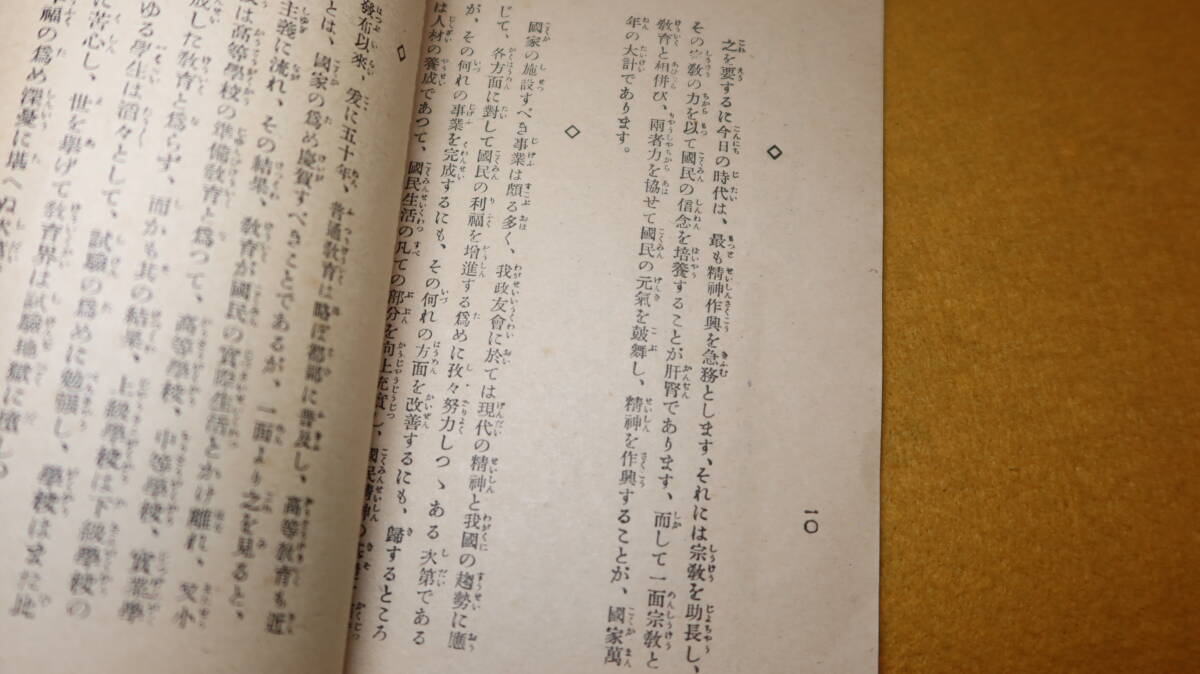 ◇
之を要するに今日の時代は、最も精神作興を急務とします、それには宗教を助長し、
その宗教の力を以て國民の信念を培養することが肝腎であります、而して一面宗教と
教育と相併び、兩者力を協せて國民の元氣を鼓舞し、精神を作興することが、國家萬
年の大計であります。
◇
國家の施設すべき事業は頗る多く、我政友會に於ては現代の精神と我國の趨勢に應
じて、各方面に對して國民の利福を增進する爲めに孜々努力しつゝある次第である
が、その何れの事業を完成するにも、その何れの方面を改善するにも、歸するところ
は人材の養成であつて、國民生活の凡ての部分を向上充實し、國民精神の
◇
發布以來、爰に五十年、普通教育は略ぼ都鄙に普及し、高等教育も近
とは、國家の爲め慶賀すべきことであるが、一面より之を見ると、
主義に流れ、その結果、教育が國民の實際生活とかけ離れ、
は高等學校の準備教育と爲つて、高等學校、中等學校、實業學
成した教育と爲らず、而かも其の結果、上級學校は下級學校の
ゆる學生は滔々として、試驗の爲めに勉強し、學校はまた此
に苦心し、世を擧げて教育界は試驗地獄に墮しつ
福の爲め深憂に堪へぬ次第
一〇